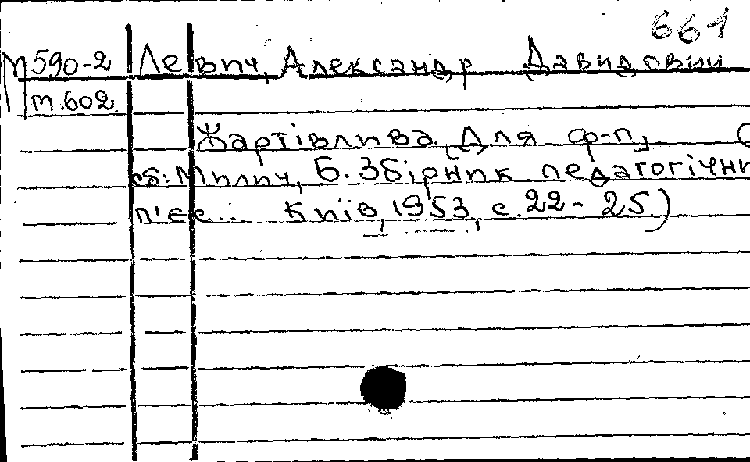 661
М590-2 Левич, Александр Давидович
т.602
Жартівлива. Для ф-п. (
сб: Милич, Б. Збірник педагогічни
п'єс... Київ, 1953, с. 22-25)